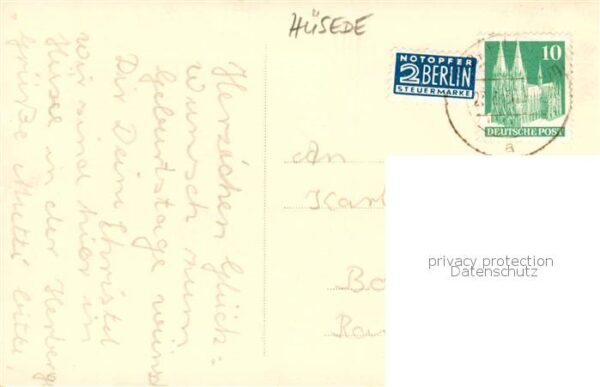 HÜSEDE
NOTOPFER
2 BERLIN
STEUERMARKE
10
DEUTSCHE POST
a
Herzlichen Glück-
wunsch zum
Geburtstage wünscht
Dir Deine Christel
wir sind hier in
Hüsede in der Herberge
Grüße Mutti bitte,
An
Karl
Bo
Ra
privacy protection
Datenschutz